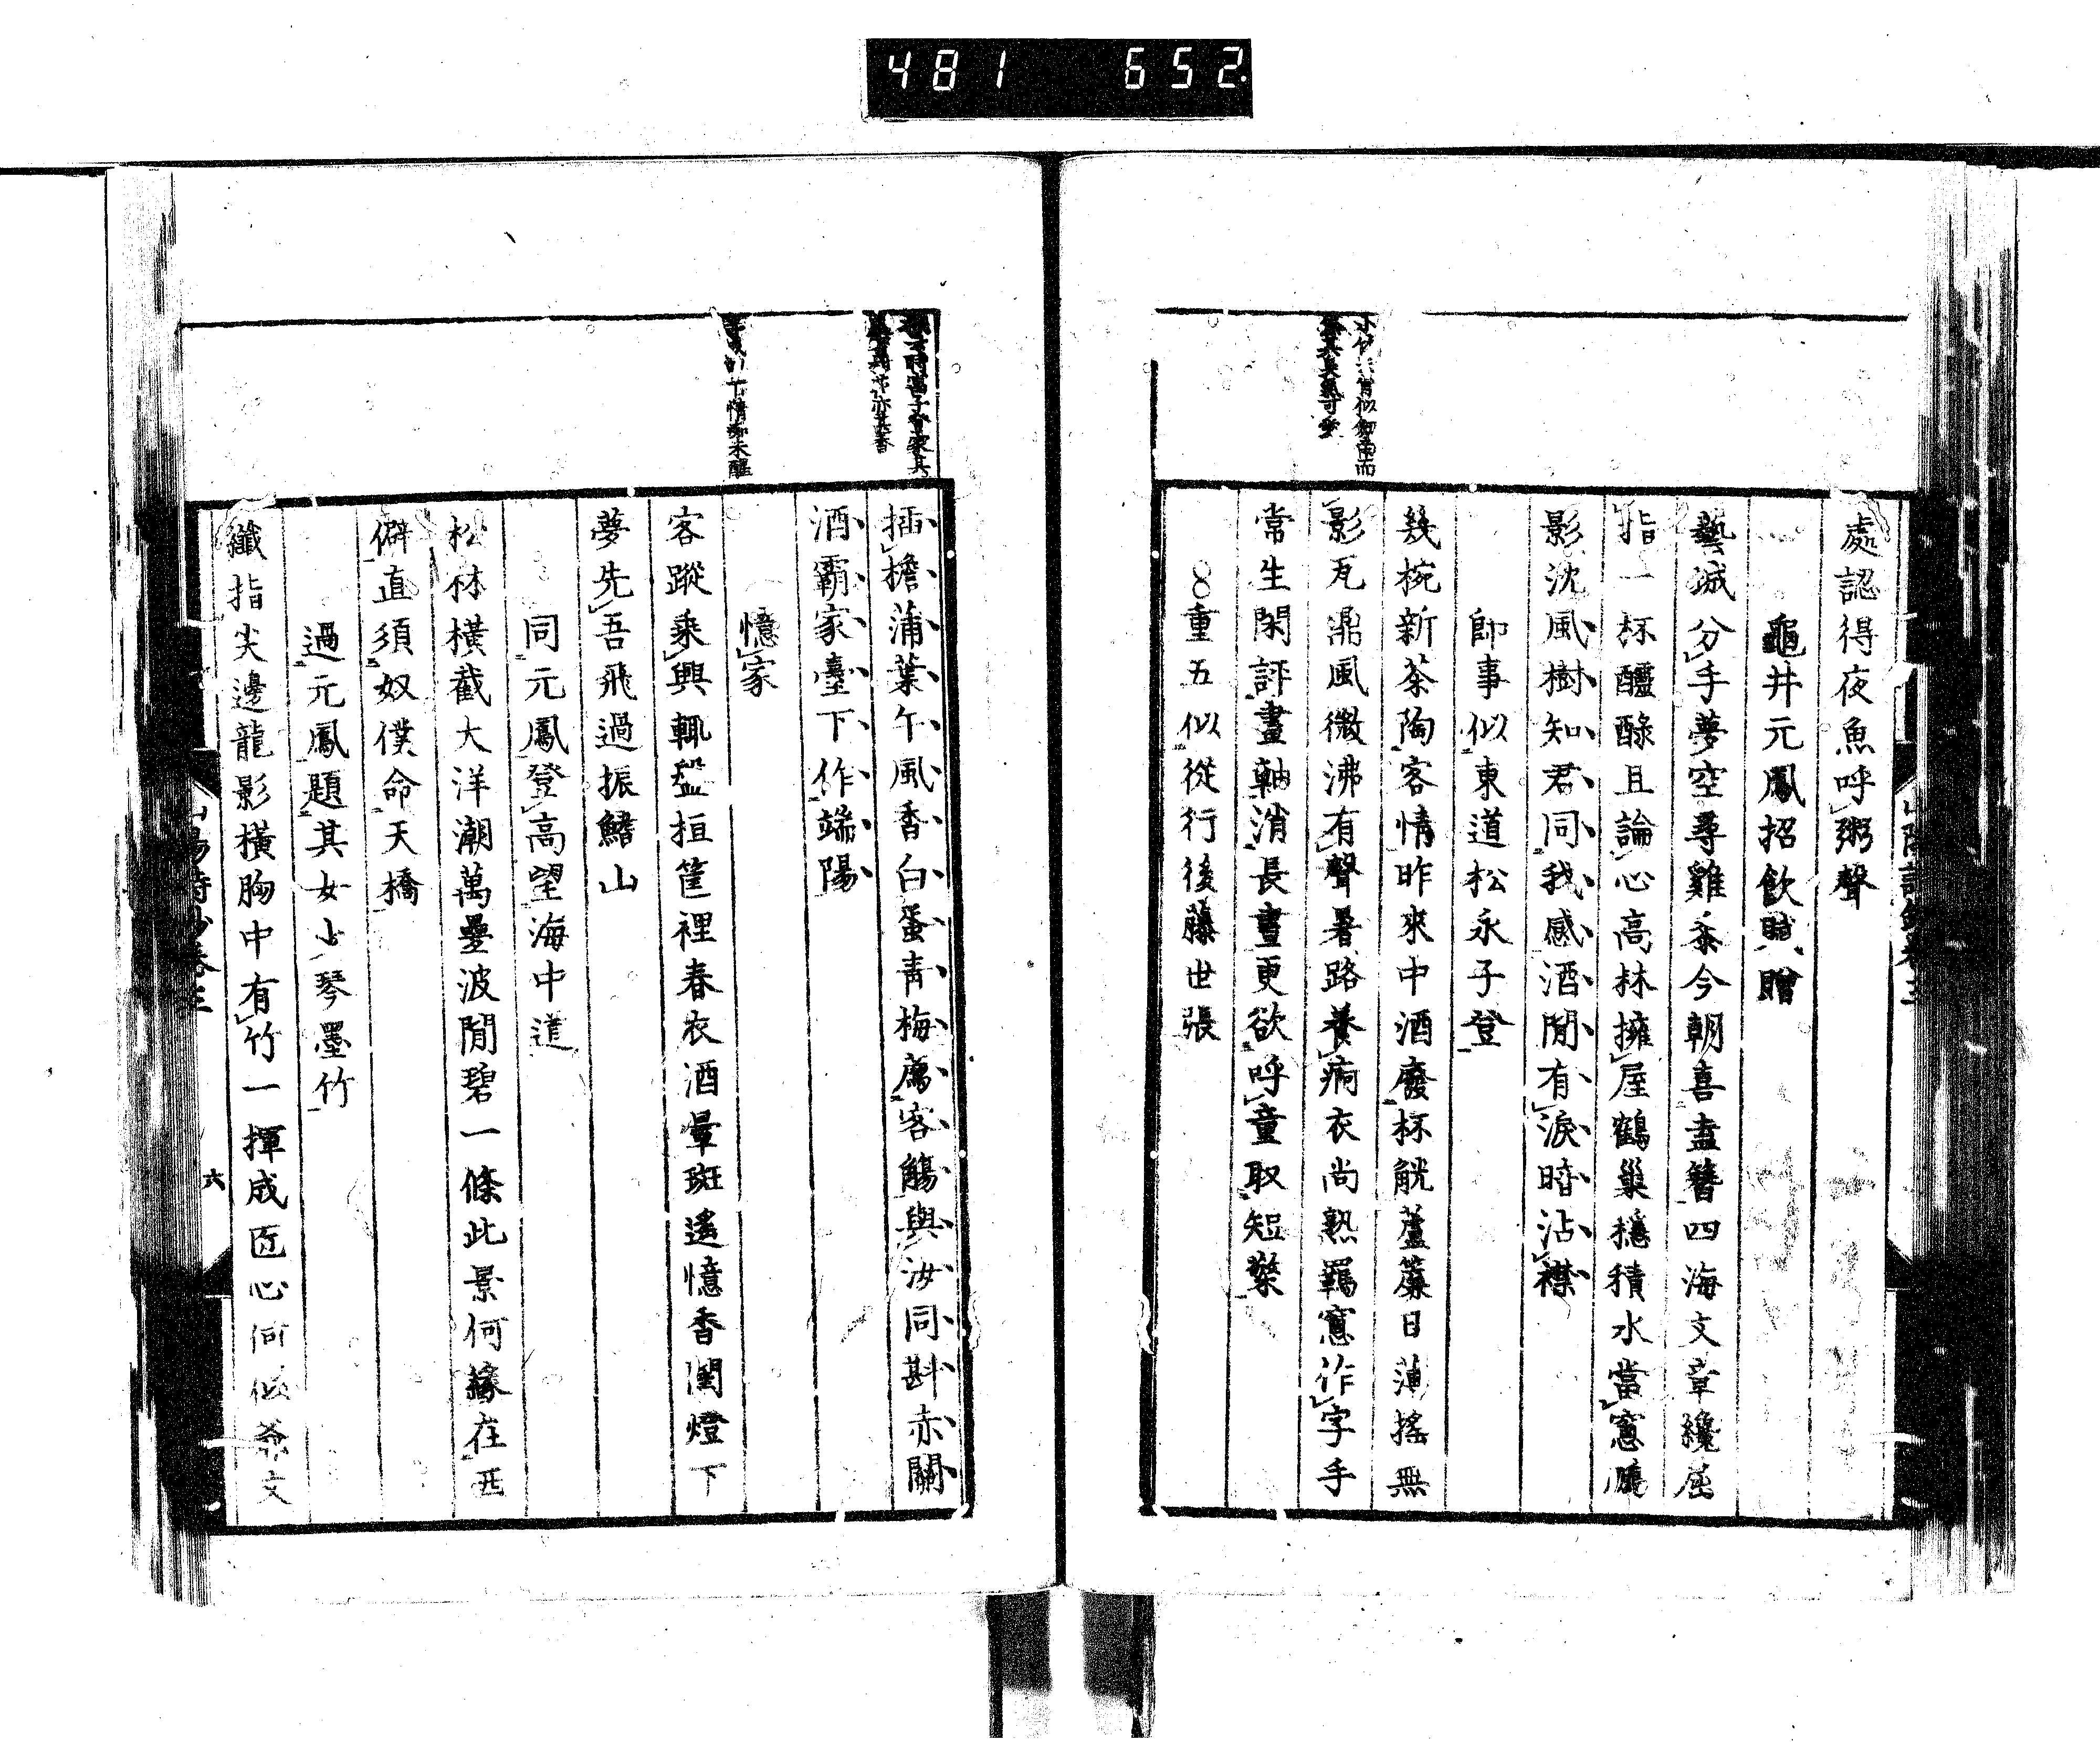 481 652
處認得夜魚呼粥聲
龜井元鳳招飲賦贈
藝滅分手夢空尋雞黍今朝喜盍簪四海文章纔屈
指一杯醽醁且論心高林擁屋鶴巢穩積水當窻鵬
影沈風樹知君同我感酒閒有淚暗沾襟
即事似東道松永子登
幾椀新茶陶客情昨來中酒廢杯觥蘆簾日薄搖無
影瓦鼎風微沸有聲暑路養痾衣尚熟羈窻作字手
常生閑評畫軸消長晝更欲呼童取短檠
重五似從行後藤世張
插檐蒲葉午風香白蛋青梅薦客觴與汝同斟赤關
酒霸家臺下作端陽
憶家
客蹤乘興輒盤桓筐裡春衣酒暈斑遙憶香閨燈下
夢先吾飛過振鰭山
同元鳳登高望海中道
松林橫截大洋潮萬疊波間碧一條此景何緣在西
僻直須奴僕命天橋
過元鳳題其女少琴墨竹
纖指尖邊龍影橫胸中有竹一揮成匠心何似爺文
六